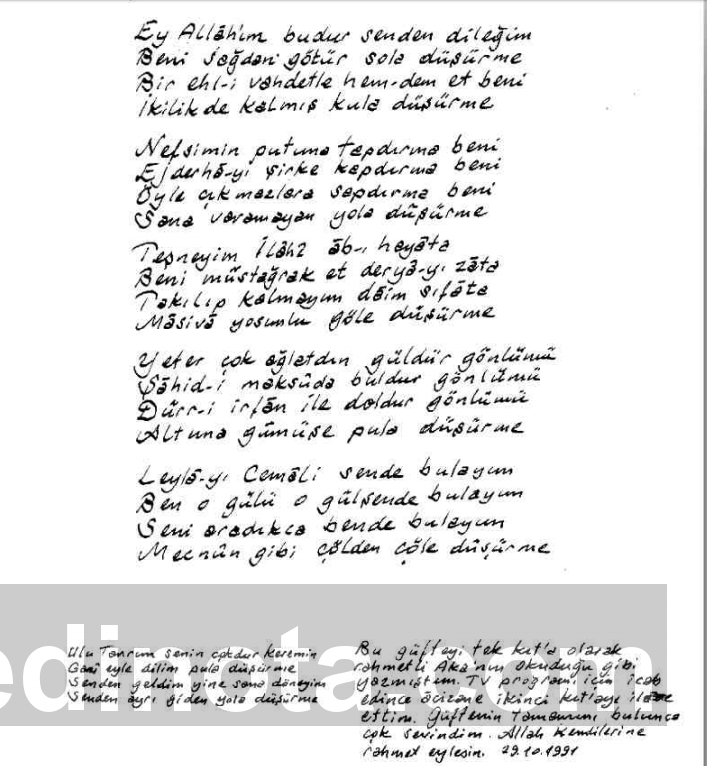 Ey Allâh'ım budur senden dileğim
Beni sağdan götür sola düşürme
Bir ehl-i vahdetle hem-dem et beni
İkilikde kalmış kula düşürme
Nefsimin putuna tapdırma beni
Ejderhâ-yi şirke kapdırma beni
Öyle çıkmazlara sapdırma beni
Sana varamayan yola düşürme
Teşneyim İlâhî âb-ı hayâta
Beni müstağrak et deryâ-yı zâta
Takılıp kalmayım dâim sıfâta
Mâsivâ yosunlu göle düşürme
Yeter çok ağlatdın güldür gönlümü
Şâhid-i maksûda buldur gönlümü
Dürr-i irfân ile doldur gönlümü
Altuna gümüşe pula düşürme
Leylâ-yı Cemâli sende bulayım
Ben o gülü o gülşende bulayım
Seni aradıkca bende bulayım
Mecnûn gibi çölden çöle düşürme
Ulu Tanrım senin çokdur keremin
Ganî eyle dilim pula düşürme
Senden geldim yine sana döneyim
Senden ayrı giden yola düşürme
Bu güfteyi tek kıt'a olarak
rahmetli Aka'nın okuduğu gibi
yazmıştım. TV programı için icab
edince âcizane ikinci kıt'ayı ilâve
ettim. Güftenin tamamını bulunca
çok sevindim. Allah kendilerine
rahmet eylesin. 29.10.1991
edinota.com